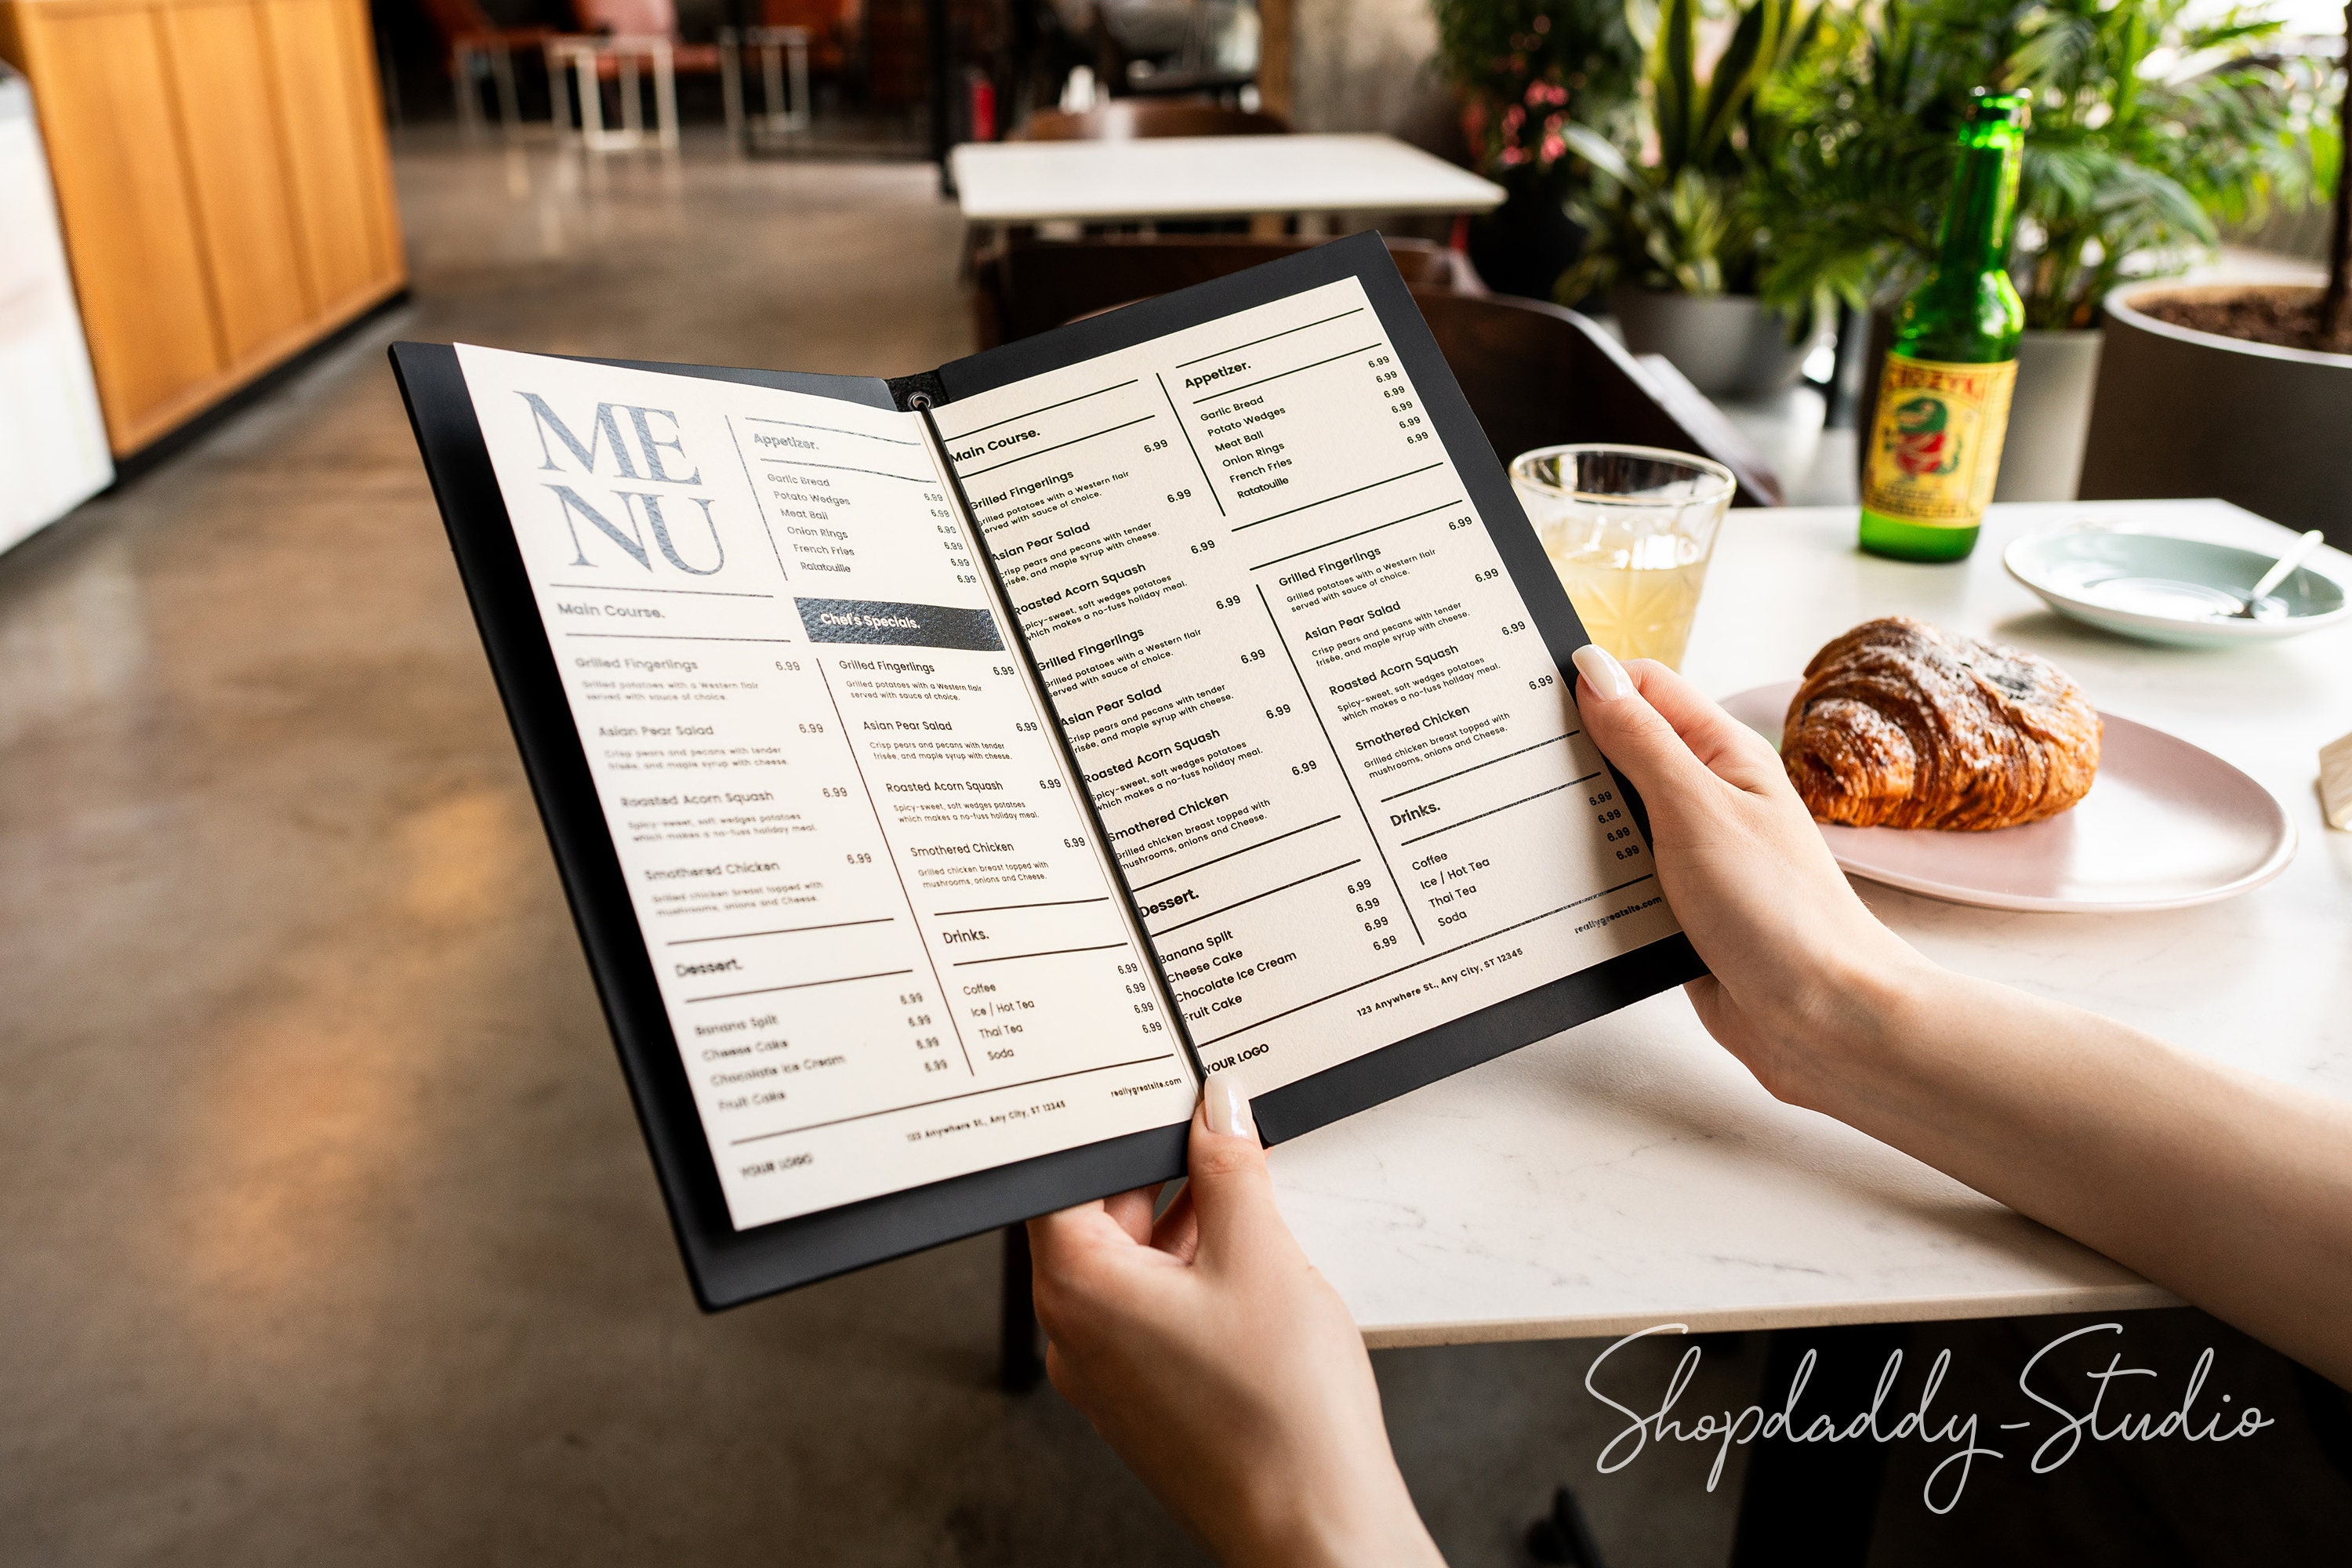 ME
NU
Appetizer.
Garlic Bread
Potato Wedges 6.99
Meat Ball 6.99
Onion Rings 6.99
French Fries 6.99
Ratatouille 6.99
6.99
Main Course.
Grilled Fingerlings 6.99
Grilled potatoes with a Western flair
served with sauce of choice.
Asian Pear Salad 6.99
Crisp pears and pecans with tender
frisée, and maple syrup with cheese.
Roasted Acorn Squash 6.99
Spicy-sweet, soft wedges potatoes
which makes a no-fuss holiday meal.
Smothered Chicken 6.99
Grilled chicken breast topped with
mushrooms, onions and Cheese.
Dessert.
6.99
Banana Split 6.99
Cheese Cake 6.99
Chocolate Ice Cream 6.99
Fruit Cake
Chef's Specials.
Grilled Fingerlings 6.99
Grilled potatoes with a Western flair
served with sauce of choice.
Asian Pear Salad 6.99
Crisp pears and pecans with tender
frisée, and maple syrup with cheese.
Roasted Acorn Squash 6.99
Spicy-sweet, soft wedges potatoes
which makes a no-fuss holiday meal.
Smothered Chicken 6.99
Grilled chicken breast topped with
mushrooms, onions and Cheese.
Drinks.
6.99
Coffee 6.99
Ice / Hot Tea 6.99
Thai Tea 6.99
Soda
YOUR LOGO
123 Anywhere St., Any City, ST 12345
reallygreatsite.com
Main Course.
6.99
Grilled Fingerlings
Grilled potatoes with a Western flair
served with sauce of choice.
6.99
Asian Pear Salad
Crisp pears and pecans with tender
frisée, and maple syrup with cheese.
6.99
Roasted Acorn Squash
Spicy-sweet, soft wedges potatoes
which makes a no-fuss holiday meal.
6.99
Grilled Fingerlings
Grilled potatoes with a Western flair
served with sauce of choice.
6.99
Asian Pear Salad
Crisp pears and pecans with tender
frisée, and maple syrup with cheese.
6.99
Roasted Acorn Squash
Spicy-sweet, soft wedges potatoes
which makes a no-fuss holiday meal.
6.99
Smothered Chicken
Grilled chicken breast topped with
mushrooms, onions and Cheese.
Dessert.
6.99
Banana Split 6.99
Cheese Cake 6.99
Chocolate Ice Cream 6.99
Fruit Cake
Appetizer.
6.99
Garlic Bread 6.99
Potato Wedges 6.99
Meat Ball 6.99
Onion Rings 6.99
French Fries 6.99
Ratatouille
6.99
Grilled Fingerlings
Grilled potatoes with a Western flair
served with sauce of choice.
6.99
Asian Pear Salad
Crisp pears and pecans with tender
frisée, and maple syrup with cheese.
6.99
Roasted Acorn Squash
Spicy-sweet, soft wedges potatoes
which makes a no-fuss holiday meal.
6.99
Smothered Chicken
Grilled chicken breast topped with
mushrooms, onions and Cheese.
Drinks.
6.99
Coffee 6.99
Ice / Hot Tea 6.99
Thai Tea 6.99
Soda
YOUR LOGO
123 Anywhere St., Any City, ST 12345
reallygreatsite.com
Shopdaddy-Studio